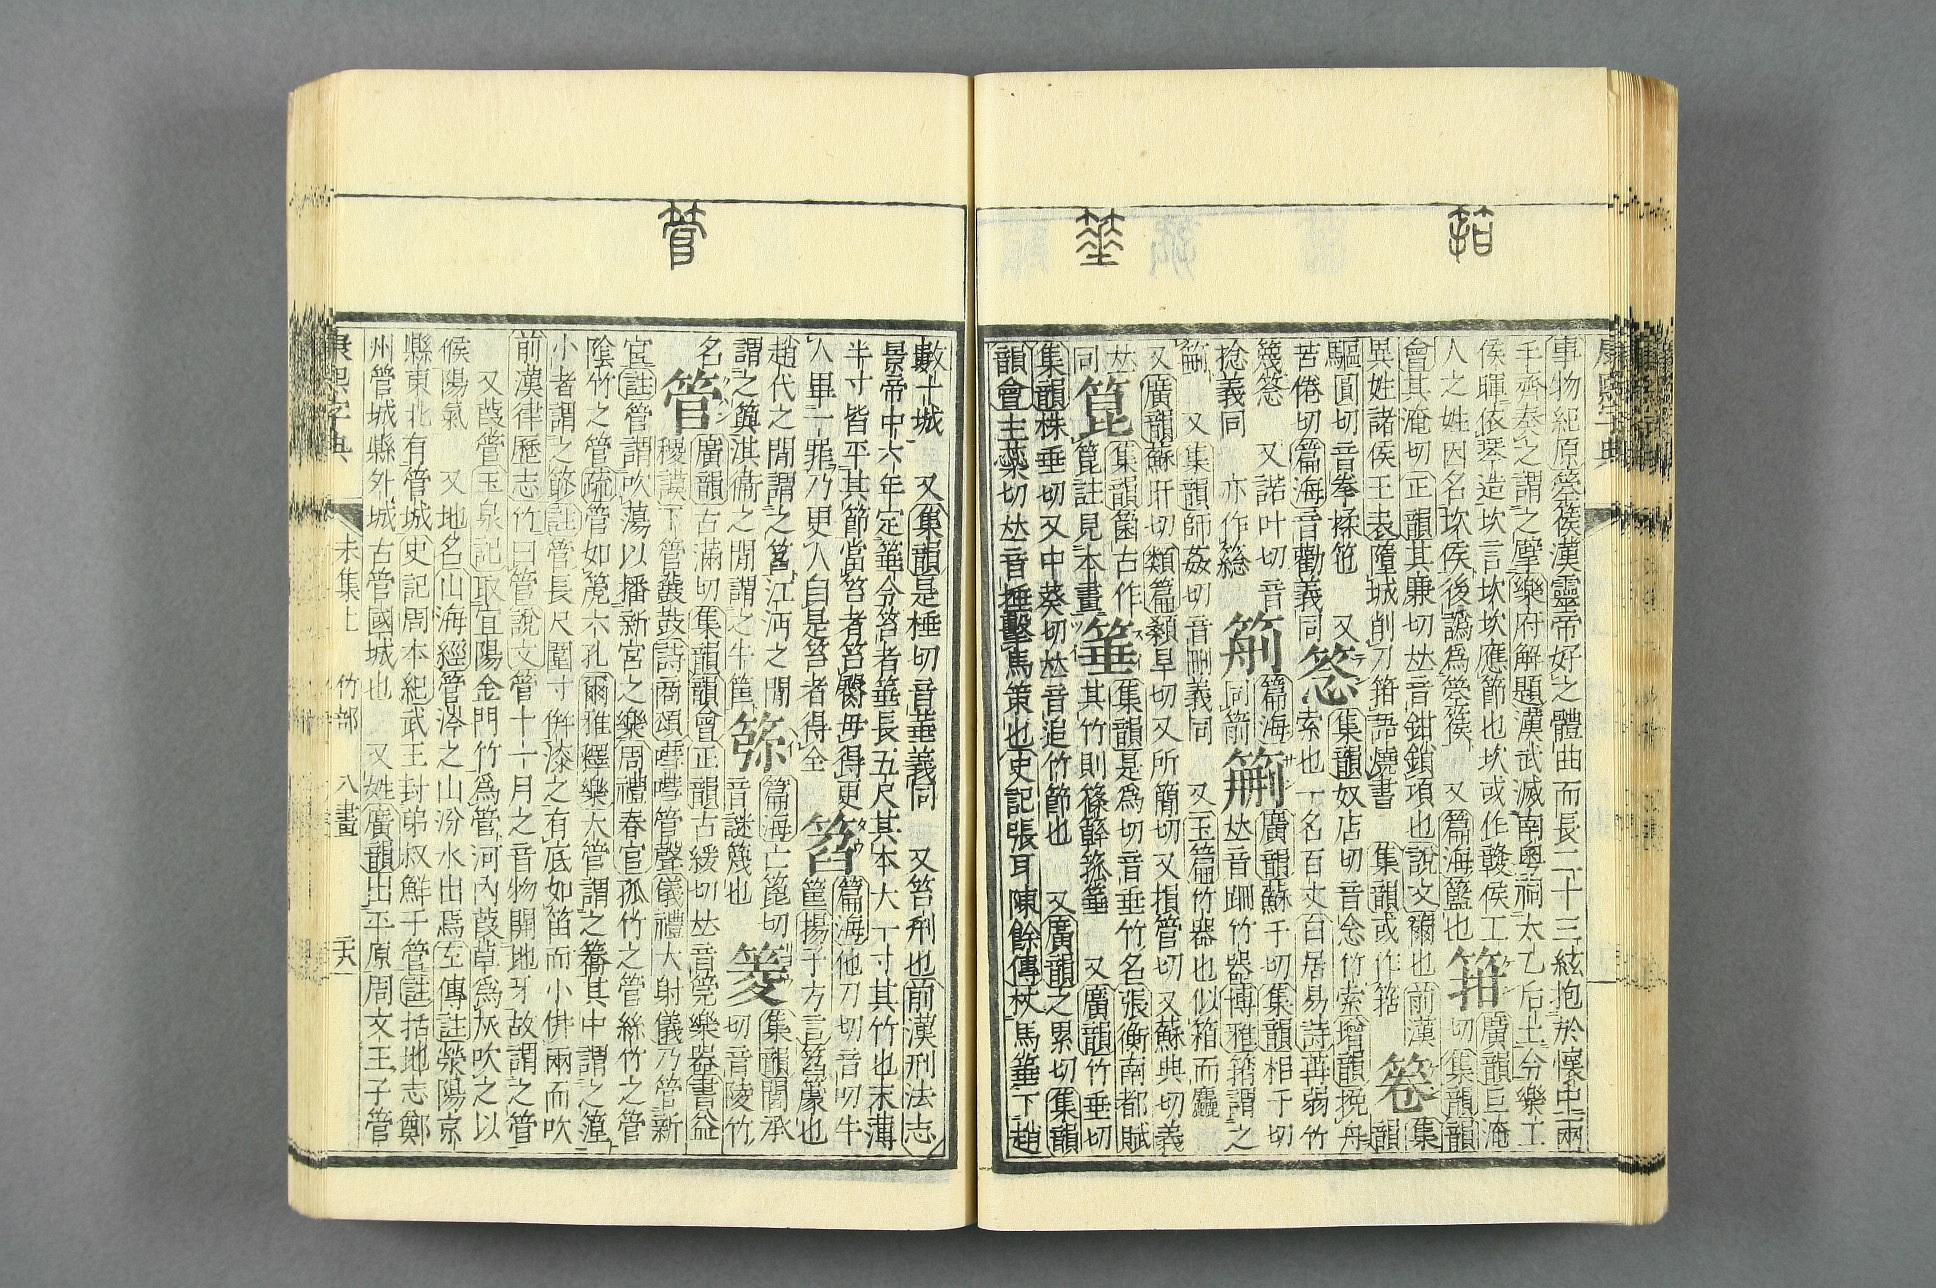 事物紀原箜篌漢靈帝好之體曲而長二十三絃抱於懷中兩
手齊奏之謂之擘樂府解題漢武滅南粵祠太乙后土令樂工
侯暉依琴造坎言坎坎應節也坎或作贛侯工
人之姓因名坎侯後譌爲箜篌 又篇海籃也 箝 廣韻巨淹切集韻韻
會其淹切正韻其廉切𠀤音鉗鎖項也說文籋也前漢
異姓諸侯王表墮城削刀箝語燒書 集韻或作箈 䇮 集韻
驅圓切音拳揉笣 又
苦倦切篇海音勸義同 䇯 集韻奴店切音念竹索增韻挽舟
索也一名百丈百居易詩苒弱竹
篾䇯 又諾叶切音
捻義同 亦作䈔 箣 篇海同箭 䈀 廣韻蘇干切集韻相干切
𠀤音跚竹器博雅䈀謂之
䈀 又集韻師姦切音刪義同 又玉篇竹器也似箱而麤
又廣韻蘇旰切類篇顙旱切又所簡切又損管切又蘇典切義
𠀤同 箟 集韻箘古作箟註見本畫 箠 集韻是爲切音垂竹名張衡南都賦
其竹則篠簳箛箠 又廣韻竹垂切
集韻株垂切又中葵切𠀤音追竹節也 又廣韻之累切集韻
韻會主蘂切𠀤音捶擊馬策也史記張耳陳餘傳杖馬箠下趙
數十城 又集韻是棰切音菙義同 又笞刑也前漢刑法志
景帝中六年定箠令笞者箠長五尺其本大一寸其竹也末薄
半寸皆平其節當笞者笞臋毋得更
人畢一罪乃更人自是笞者得全 䈁 篇海他刀切音叨牛
筐揚子方言䈁䉚也
趙代之閒謂之筥江沔之閒
謂之籅淇衞之閒謂之牛筐 𥮘 篇海亡篦切
音謎篾也 䔖 集韻閭承
切音陵竹
名 管 廣韻古滿切集韻韻會正韻古緩切𠀤音筦樂器書益
稷謨下管鼗鼓詩商頌嘒嘒管聲儀禮大射儀乃管新
宮註管謂吹蕩以播新宮之樂周禮春官孤竹之管絲竹之管
陰竹之管疏管如篪六孔爾雅釋樂大管謂之簥其中謂之篞
小者謂之篎註管長尺圍寸倂漆之有底如笛而小倂兩而吹
前漢律歷志竹曰管說文管十一月之音物開地牙故謂之管
又葭管玉泉記取宜陽金門竹爲管河內葭草爲灰吹之以
候陽氣 又地名山海經管涔之山汾水出焉左傳註滎陽京
縣東北有管城史記周本紀武王封弟叔鮮于管註括地志鄭
州管城縣外城古管國城也 又姓廣韻出平原周文王子管
康熙字典 未集上 竹部 八畫